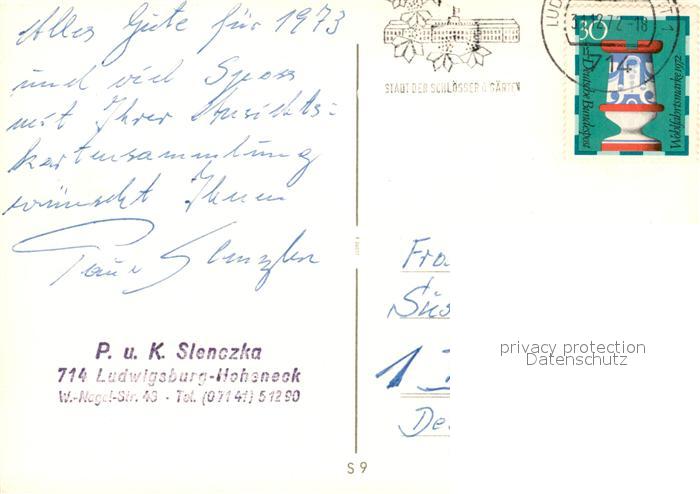 Alles Gute für 1973
und viel Spass
mit Ihrer Ansichts=
kartensammlung
wünscht Ihnen
P. u. K. Slenczka
714 Ludwigsburg-Hoheneck
W.-Nagel-Str. 49 - Tel. (07141) 51290
STADT DER SCHLÖSSER U. GÄRTEN
LUD
14
30
Deutsche Bundespost
Wohlfahrtsmarke 1972
Fra
Süs
1
De
privacy protection
Datenschutz
S 9